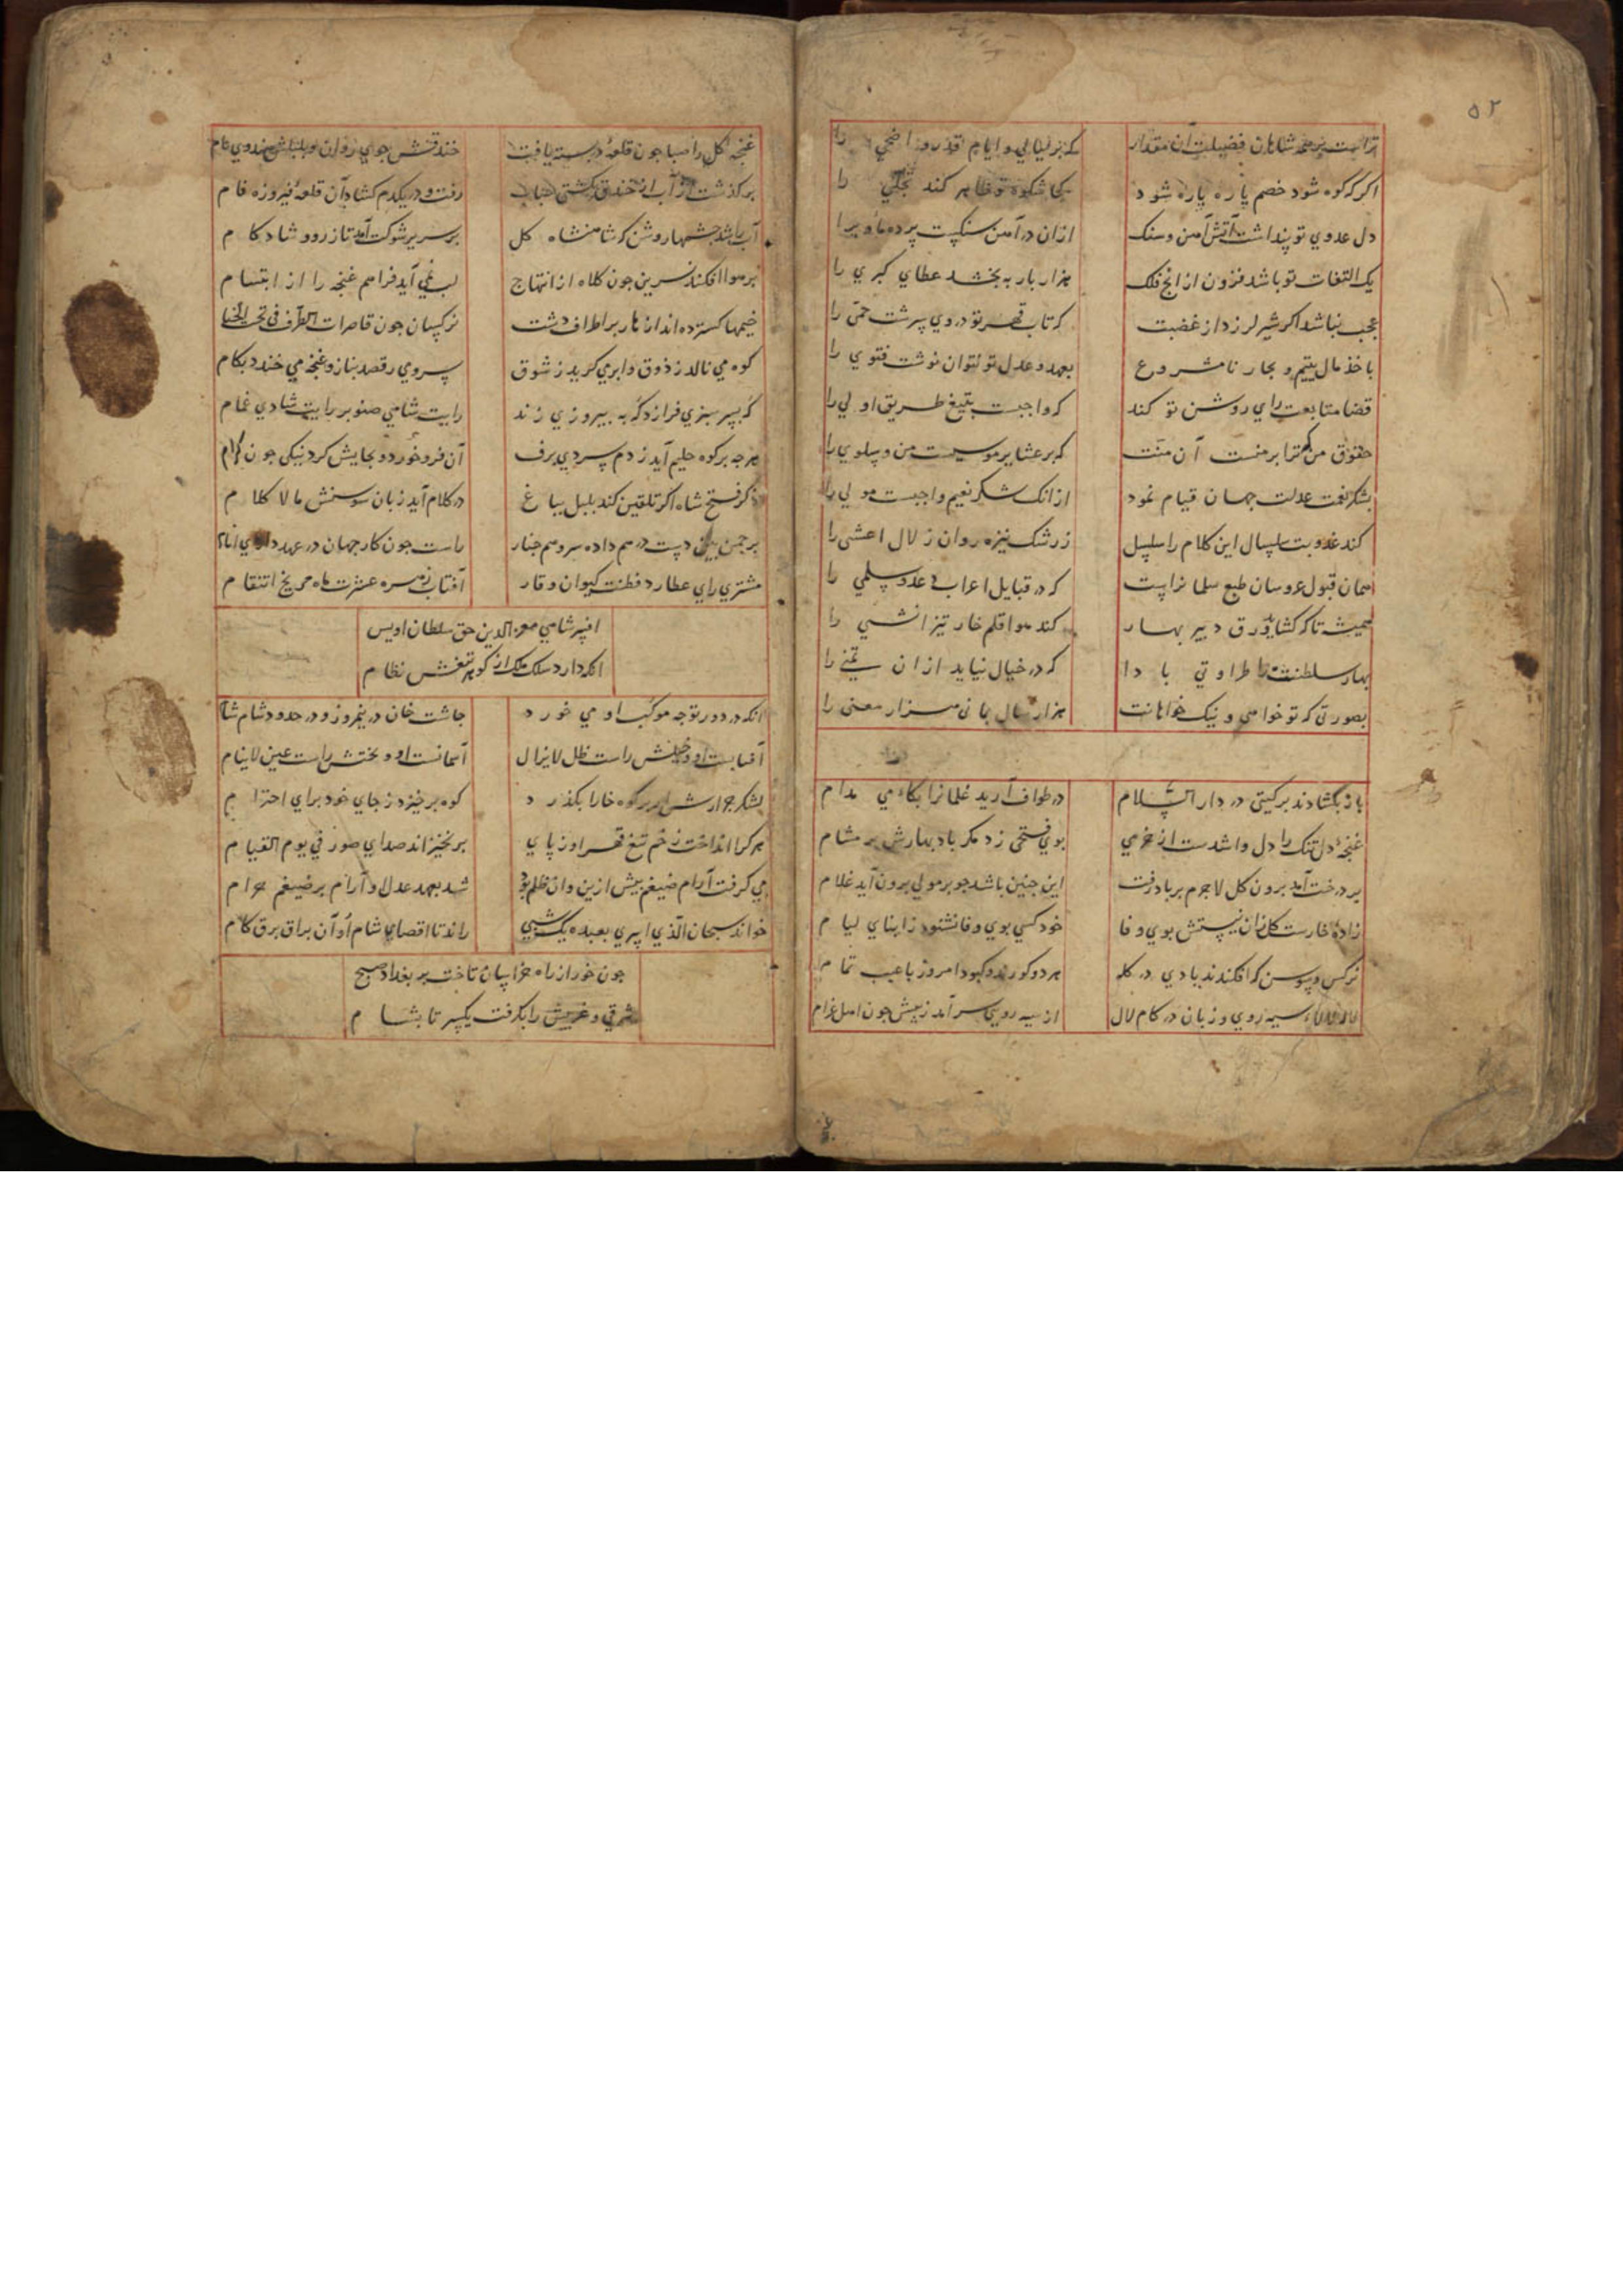 ۵۲
تراست بر همه شاهان فضیلت آن مقدار که بر لیالی و ایام قدر و اضحی را
اکر که کوه شود خصم پاره پاره شود کجا شکوه تو ظاهر کند تجلی را
دل عدوی تو پنداشت آتش آهن و سنک از ان در آهن سنکست پرده مأوی را
یک التفات تو باشد فزون از انج فلک هزار بار به بخشد عطای کبری را
عجب نباشد اکر شیر لرزد از غضبت که تاب قهر تو در وی سرشت حمی را
باخذ مال یتیم و بجار نامشروع بعهد و عدل تو نتوان نوشت فتوی را
قضا متابعت رای روشن تو کند که واجبست بتیغ طریق اولی را
حقوق من که ترا بر منست آن منت که بر عشایر موسیست من و سلوی را
بشکر نعمت عدلت جهان قیام نمود از انک شکر نعیم واجبست مولی را
کند عذوبت سلسال این کلام را سلسل ز رشک نیزه روان زلال اعشی را
همان قبول عروسان طبع سلمانراست که در قبایل اعراب عدو سلمی را
همیشه تا که کشاید ورق دبیر بهار کند هوا قلم خار تیز انشی را
بهار سلطنتت با طراوتی بادا که در خیال نیاید از ان تمنی را
بصورتی که تو خواهی و نیک خواهانت هزار سال بمانی هزار معنی را
باز بکشادند بر کیتی در دار السلام در طواف آرید غلمانرا بکاء می مدام
غنچه دل تنک را دل وا شدست از خرمی بوی فتحی زد مکر باد بهارش بر مشام
بر درخت آمد برون کل لاجرم بر باد رفت این جنین باشد جو بر مولی برون آید غلام
زاده خارست کل زان نیستش بوی وفا خود کسی بوی وفا نشنود ز ابنای لیام
نرکس و سوسن که افکندند بادی در کله هر دو کورند و کبود امروز با عیب تمام
سیه روی و زبان در کام لال از سیه رویی سر آمد ز پیش جون اهل غرام
غنجه کل را صبا جون قلعه در بسته یافت خندقش جوی روان و بلبلش هندوی بام
بر کذشت از آب از خندق بکشتی حباب رفت و در یکدم کشاد آن قلعه فیروزه فام
آب را شد جشمها روشن که شاهنشاه کل بر سریر شوکت آمد تازه رو و شاد کام
بر هوا افکند نسرین جون کلاه از ابتهاج لب نمی آید فراهم غنجه را از ابتسام
خیمها کسترده اند ازهار بر اطراف دشت نرکسان جون قاصرات الطرف فی تحت الخیام
کوه می نالد ز ذوق و ابر می کرید ز شوق سروی رقصد بناز و غنچه می خندد بکام
که بسر سبزی فرازد که به بیروزی زند رایت شاهی صنوبر رایت شادی غمام
هرجه بر کوه حلیم آید ز دم سردی برف آن فرو خورد و بجایش کرد نیکی جون کرام
ذکر فتح شاه اکر تلقین کند بلبل بباغ در کلام آید زبان سوسنش مالا کلام
بر جمن بین دست در هم داده سرو هم جنار راست جون کار جهان در عهد دارای انام
مشتری رای عطارد فطنت کیوان وقار آفتاب زهره عشرت ماه مریخ انتقام
افسر شاهی معز الدین حق سلطان اویس
انکه دارد سلک ملک از کوهر تیغش نظام
انکه در دور توجه موکب او می خورد جاشت خان در نیمروز و در حدود شام شام
آفتابست او و ظلش راست ظل لایزال آسمانست او و بختش راست عین لاینام
لشکر جرارش ار بر کوه خارا بکذرد کوه برخیزد ز جای خود برای احترام
هر کرا انداخت زخم تیغ قهر او ز پای بر نخیزاند صدای صور فی یوم القیام
می کرفت آرام ضیغم بیش ازین وان ظلم بود شد بعهد عدل او آرام بر ضیغم حرام
خواند سبحان الذی اسری بعبده یک شبی راند تا اقصای شام او آن براق برق کام
جون خور از راه خراسان تاخت بر بغداد صبح
شرقی و غربیش را بکرفت یکسر تا بشام